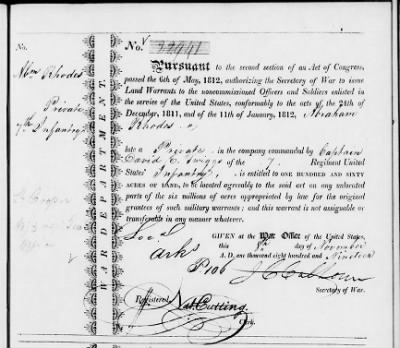 No.
Abm Rhodes
Private
7th Infantry
WAR DEPARTMENT.
No.
Pursuant to the second section of an Act of Congress,
passed the 6th of May, 1812, authorizing the Secretary of War to issue
Land Warrants to the noncommissioned Officers and Soldiers enlisted in
the service of the United States, conformably to the acts of the 24th of
December, 1811, and of the 11th of January, 1812, Abraham
Rhodes
late a Private in the company commanded by Captain
David E. Twiggs of the 7 Regiment United
States' Infantry, is entitled to ONE HUNDRED AND SIXTY
ACRES OF LAND, to be located agreeably to the said act on any unlocated
parts of the six millions of acres appropriated by law for the original
grantees of such military warrants; and this warrant is not assignable or
transferable in any manner whatever.
GIVEN at the War Office of the United States,
this 8th day of November
A. D. one thousand eight hundred and Nineteen
Loc d
Arks
P 106
J C Calhoun
Secretary of War.
Registered Nat Cutting
Clerk.